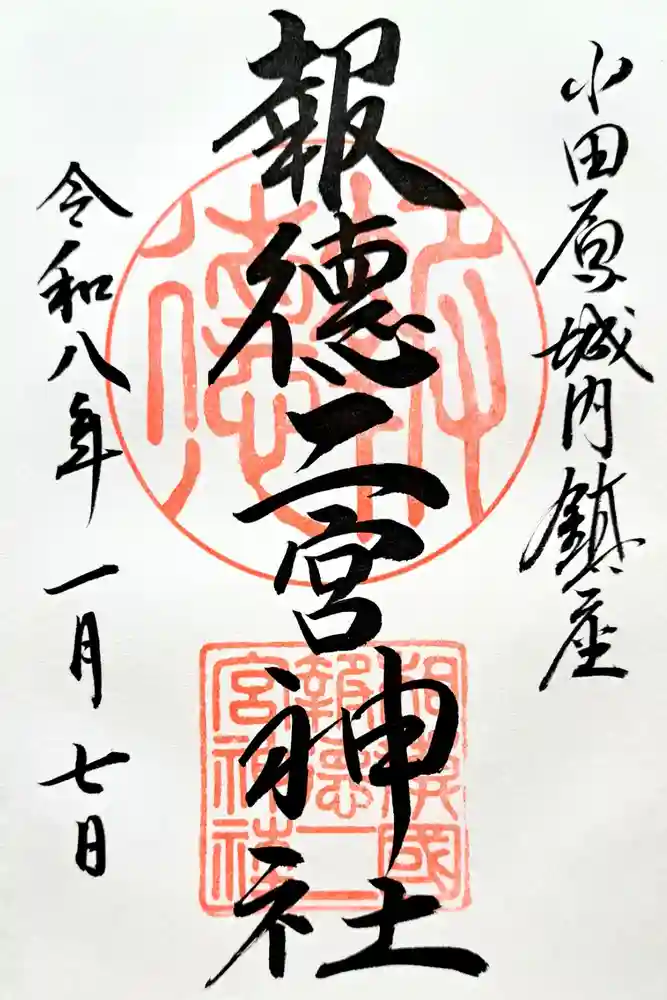 小田原城内鎮座
報徳二宮神社
令和八年一月七日
報徳
相模國
報徳二
宮神社